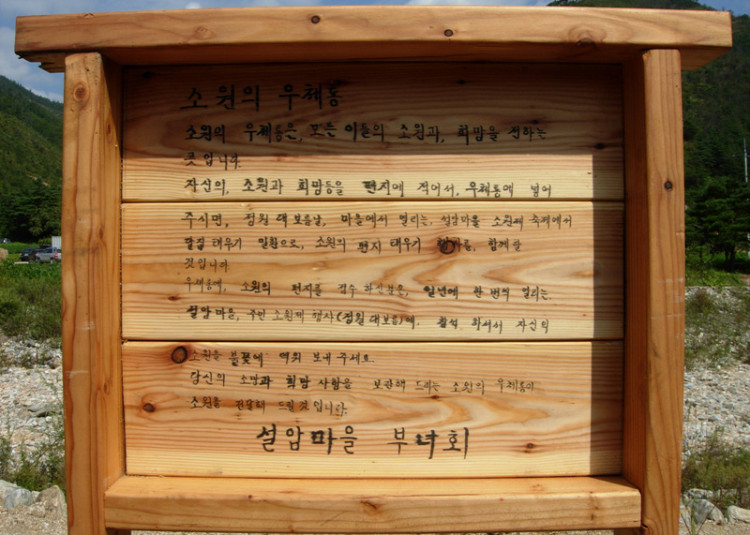 소원의 우체통
소원의 우체통은, 모든 이들의 소원과, 희망을 전하는
곳입니다.
자신의, 소원과 희망등을 편지에 적어서, 우체통에 넣어
주시면, 정월 대보름날, 마을에서 열리는, 설암마을 소원제 축제에서
달집 태우기 일환으로, 소원의 편지 태우기 행사를, 함께할
것입니다
우체통에, 소원의 편지를 접수 하신분은, 일년에 한번씩 열리는.
설암마을, 주민 소원제 행사(정월 대보름)에. 참석 하셔서 자신의
소원을 불꽃에 역어 보내 주세요
당신의 소망과 희망 사랑을 보관해 드리는 소원의 우체통이
소원을 전달해 드릴것 입니다.
설암마을 부녀회